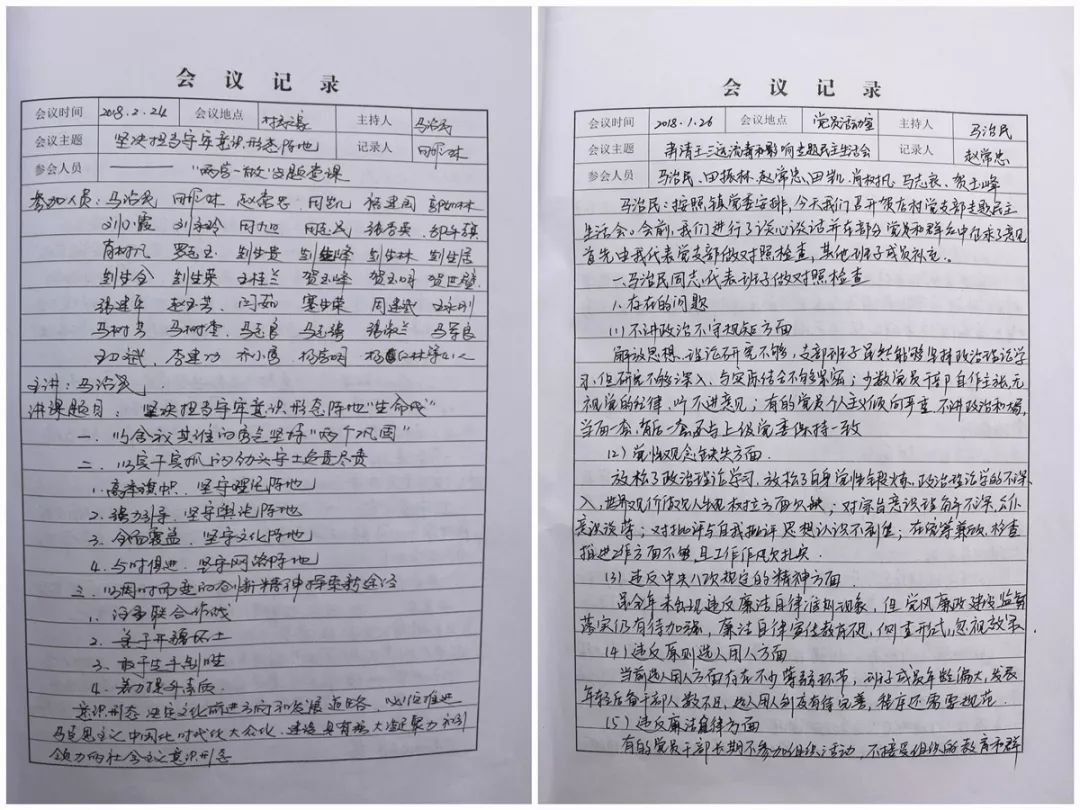 会议记录
会议时间 2018.2.24 会议地点 村之家 主持人 马治民
会议主题 坚决担当守牢意识形态阵地 记录人
参会人员 "两学一做"专题党课
参加人员：马治民 赵常忠 田凯
刘小霞 刘永玲 田旭
肖树凡 刘生贵 刘生峰 刘生林 刘生居
刘生全 刘生荣 王桂兰 贺玉峰 贺玉明
张建平 赵玉芳 闫茹 塞生荣 周建斌
马树芳 马树奎 马志良 马志强 张淑兰 马军良
李建功 乔小勇 杨崇明
主讲：马治民
讲课题目：坚决担当守牢意识形态阵地"生命线"
一、以舍我其谁的勇气坚持"两个巩固"
二、以实干实抓的劲头守土负责尽责
1.高举旗帜、坚守理论阵地
2.强力引导、坚守舆论阵地
3.全面覆盖、坚守文化阵地
4.与时俱进、坚守网络阵地
三、以因时而变的创新精神探索新途径
1.注重联合作战
2.善于开疆拓土
3.敢于先于制胜
4.着力提升素质
意识形态决定文化前进方向和发展道路，必须推进
马克思主义中国化时代化大众化，建设具有强大凝聚力和引
领力的社会主义意识形态
会议记录
会议时间 2018.1.26 会议地点 党员活动室 主持人 马治民
会议主题 肃清王三运流毒和影响专题民主生活会 记录人 赵常忠
参会人员 马治民、田振林、赵常忠、田凯、肖树凡、马志良、贺玉峰
马治民：按照镇党委安排，今天我们召开贺店村党支部专题民主
生活会。会前，我们进行了谈心谈话并在部分党员和群众中征求了意见
首先由我代表党支部做对照检查，其他班子成员补充。
一、马治民同志代表班子做对照检查
1.存在的问题
(1)不讲政治不守规矩方面
解放思想、理论研究不够，支部班子虽然能够坚持政治理论学
习，但研究不够深入，与实际结合不够紧密；少数党员干部自作主张，无
视党的纪律，听不进意见；有的党员个人主义倾向严重，不讲政治和规
当面一套，背后一套，不与上级党委保持一致
(2)党性观念缺失方面
放松了政治理论学习，放松了自身党性锻炼，政治理论学的不深
入，世界观价值观人生观权力方面欠缺；对宗旨意识
意识淡薄；对批评与自我批评思想认识不到位；在统筹兼顾、检查
推进工作方面不够，且工作作风欠扎实
(3)违反中央八项规定的精神方面
虽全年未出现违反廉洁自律准则现象，但党风廉政建设监督
落实仍有待加强，廉洁自律宣传教育不足，侧重形式，忽视效果
(4)违反原则选人用人方面
当前选人用人方面存在不少薄弱环节，班子成员年龄偏大，发展
年轻后备干部人数不足，选人用人制度有待完善，程序还需要规范
(5)违反廉洁自律方面
有的党员干部长期不参加组织活动，不接受组织的教育和群